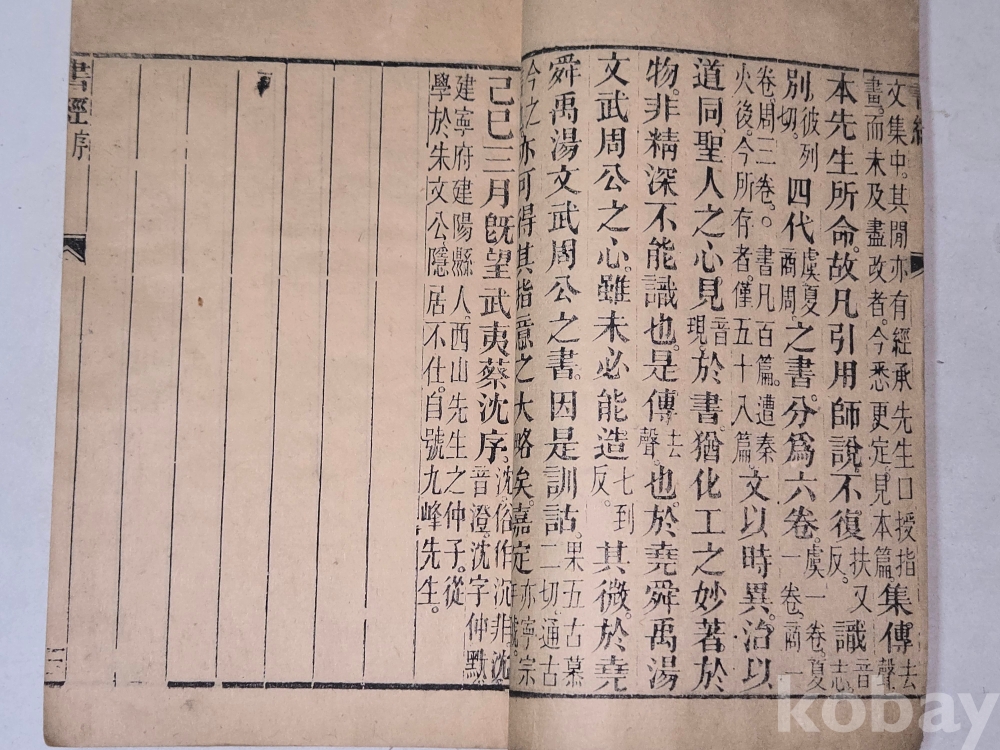 文集中。其閒亦有經承先生口授指畫而未及盡改者。今悉更定。見本篇。集傳去聲
本先生所命。故凡引用師說。不復扶又反。識音志
別。彼列切。四代虞夏商周。之書。分爲六卷。虞一卷。夏一卷。商一
卷。周三卷。○書凡百篇。遭秦火後。今所存者。僅五十八篇。文以時異。治以
道同。聖人之心見音現。於書。猶化工之妙著於
物。非精深不能識也。是傳去聲。也。於堯舜禹湯
文武周公之心。雖未必能造七到反。其微。於堯
舜禹湯文武周公之書。因是訓詁。果五古慕二切。通古
今之亦可得其指意之大略矣。嘉定亦寧宗
己巳三月旣望武夷蔡沈序。沈俗作沉非沈音澄。沈字仲默
建寧府建陽縣人。西山先生之仲子。從學於朱文公。隱居不仕。自號九峰先生。
書經序
kobay